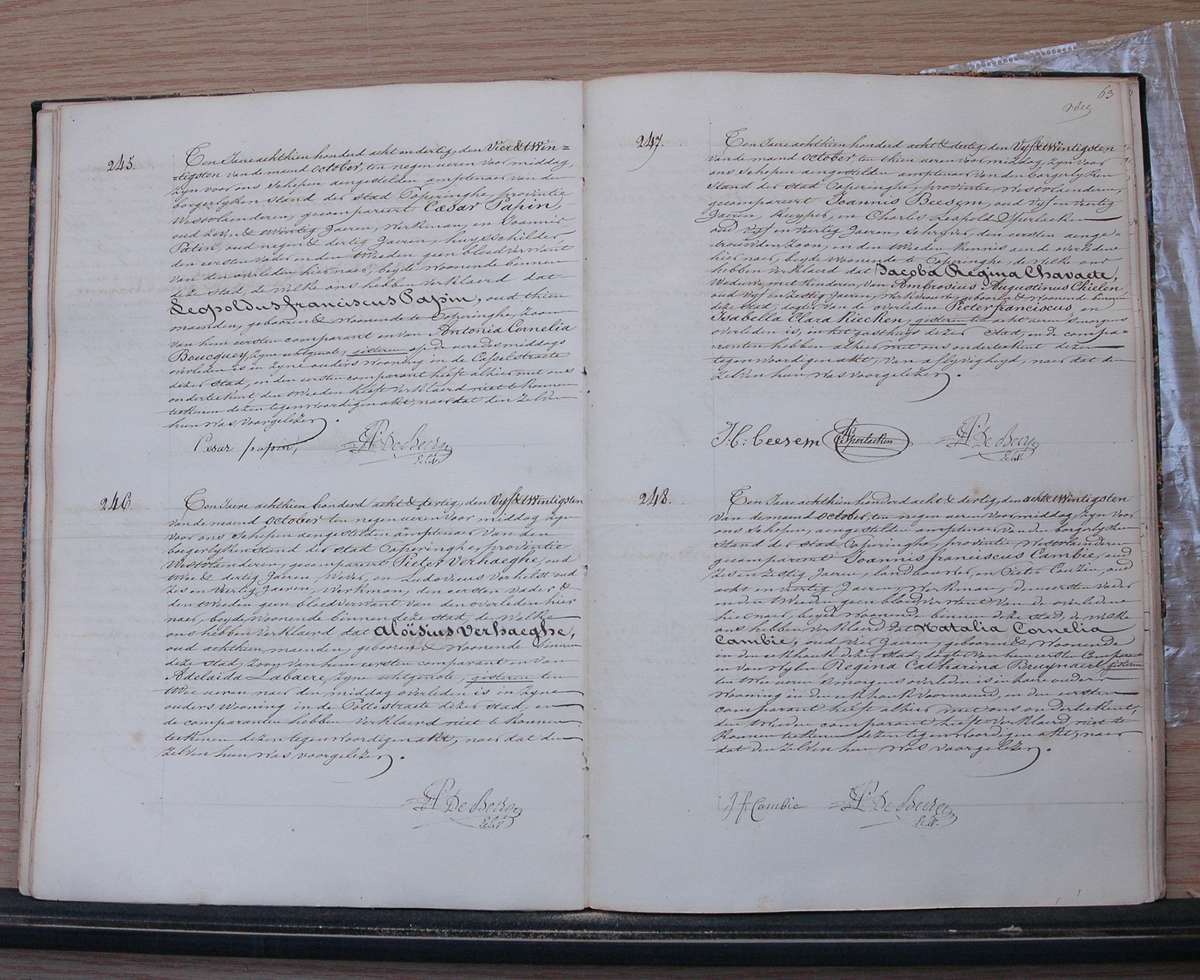 245.
Ten Jaere achthien honderd acht en dertig, den Vier & twin=
=tigsten van de maand October, ten negen ueren voor middag,
zyn voor ons Schepen aengestelden amptenaer van den
borgerlyken stand der stad Poperinghe, provintie
Westvlanderen, gecompareert Cæsar Papin,
oud & twintig Jaeren, Werkman, en Joannes
oud negen & dertig Jaeren, huysschilder
den eersten vader en den tweeden geen bloedverwant
van den overleden hier naer, beyde woonende binnen
deze stad, de welke ons hebben verklaerd dat
Leopoldus franciscus Papin, oud thien
maenden, geboren & woonende te Poperinghe, zoon
van hem eersten comparant en van Antonia Cornelia
Boucquey, zyne echtgenote, gisteren 
overleden is in zyne ouders wooning in de Casselstraete
dezer stad, en den eersten comparant heeft alhier met ons
onderteekent den tweeden heeft verklaerd niet te konnen
teekenen dezen tegenwoordigen akt, naer dat den zelven
hun was voorgelezen.
Cesar papin, Pr. De
246.
Ten Jaere achthien honderd acht & dertig, den Vyf & twintigsten
van de maand October ten negen ueren voor middag zyn
voor ons Schepen aengestelden amptenaer van den
borgerlyken stand der stad Poperinghe, provintie
Westvlanderen, gecompareert Pieter Verhaeghe, oud
twee & dertig Jaeren, Wever, en Ludovicus Verhulst oud
zes en Veertig Jaeren, Werkman, den eersten vader &
den tweeden geen bloedverwant van den overleden hier
naer, beyde woonende binnen deze stad, de welke
ons hebben verklaerd dat Aloïsius Verhaeghe,
oud achthien maenden, geboren & woonende binnen
deze stad, zoon van hem eersten comparant en van
Adelaida Labaere, zyne echtgenote, gisteren ten
twee ueren naer den middag overleden is in zyne
ouders wooning in de Pottestraete dezer stad, en
de comparanten hebben verklaerd niet te konnen
teekenen dezen tegenwoordigen akt, naer dat den
zelven hun was voorgelezen.
Pr. De
63
247.
Ten Jaere achthien honderd acht & dertig, den Vyf & twintigsten
van de maand October ten thien ueren voor middag, zyn voor
ons Schepen aengestelden amptenaer van den borgerlyken
stand der stad Poperinghe, provintie Westvlanderen,
gecompareert Joannis Beesem, oud Vyf en veertig
Jaeren, Kuyper, en Charles Leopold
oud vyf en veertig Jaeren, Schryver, den eersten aenge=
trouwden zoon, en den tweeden kennis aen de overledene
hier naer, beyde woonende te Poperinghe de welke ons
hebben verklaerd dat Jacoba Regina Chavaete,
Weduwe met kinderen van Ambrosius Augustinus Thielen
oud vyf en zestig Jaeren, geboren & woonende binnen
deze stad, dogter van de overleden Pieter franciscus, en
Isabella Clara Rieckem, gisteren
overleden is, in dezer stad, en de compa=
ranten hebben alhier met ons onderteekent dezen
tegenwoordigen akt, van aflyvigheyd, naer dat den
zelven hun was voorgelezen.
J. beesem Pr. De
248.
Ten Jaere achthien honderd acht & dertig, den acht & twintigsten
van de maand October ten negen ueren voor middag zyn voor
ons Schepen, aengestelden amptenaer van den borgerlyken
stand der stad Poperinghe, provintie Westvlanderen
gecompareert Joannis franciscus Cambie, oud
zes en zestig Jaeren, landbouwer, en Pieter oud
acht en veertig Jaeren, Werkman, den eersten vader
en den tweeden geen bloedverwant van de overledene
hier naer, beyde woonende binnen deze stad, de welke
ons hebben verklaerd dat Natalia Cornelia
Cambie, oud vier Jaeren geboren & woonende
in den dezer stad, dogter van hem eersten comparant
en van wylen Regina Catharina Bruynaert, gisteren
ten ueren s'morgens overleden is in haer ouders
wooning in den voornoemd, en den eersten
comparant heeft alhier met ons onderteekent,
den tweeden comparant heeft verklaerd niet te
konnen teekenen dezen tegenwoordigen akt, naer
dat den zelven hun was voorgelezen.
J f Cambie Pr. De